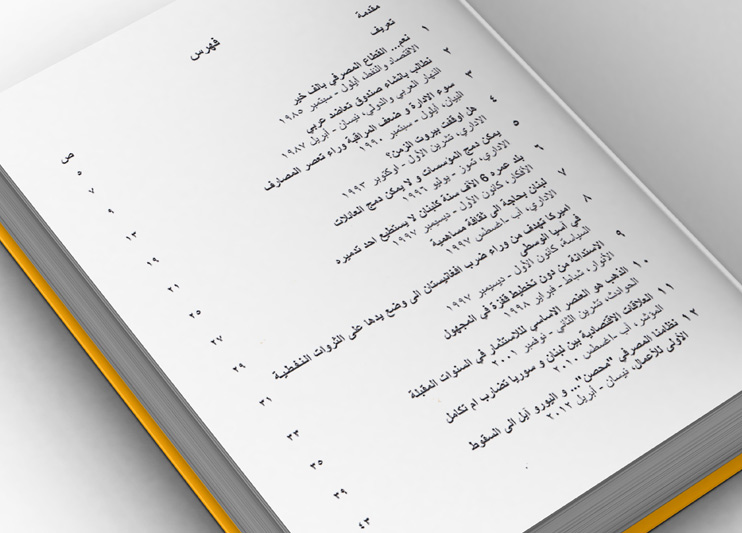 فهرس
ص
مقدمة ٥
تعريف ٧
١ نعم... القطاع المصرفي بالف خير ٩
الاقتصاد والنفط، أيلول - سبتمبر ١٩٨٥
٢ نطالب بانشاء صندوق تعاضد عربي ١٣
النهار العربي والدولي، نيسان - أبريل ١٩٨٧
٣ سوء الادارة و ضعف المراقبة وراء تعثر المصارف ١٩
البيان، أيلول - سبتمبر ١٩٩٠
٤ هل اوقفت بيروت الزمن؟ ٢١
الاداري، تشرين الأول - اوكتوبر ١٩٩٣
٥ يمكن دمج المؤسسات و لا يمكن دمج العائلات ٢٥
الاداري، تموز - يوليو ١٩٩٦
٦ بلد عمره 6 آلاف سنة كلبنان لا يستطيع احد تدميره ٢٧
الأفكار، كانون الأول - ديسمبر ١٩٩٧
٧ لبنان بحاجة الى ثقافة مساهمية ٢٩
الاداري، آب -اغسطس ١٩٩٧
٨ اميركا تهدف من وراء ضرب افغانيستان الى وضع يدها على الثروات النفطية ٣١
في آسيا الوسطى
السياسة، كانون الأول - ديسيمبر ١٩٩٧
٩ الاستدانة من دون تخطيط قفزة في المجهول ٣٣
الأنوار، شباط - فبراير ١٩٩٨
١٠ الذهب هو العنصر الاساسي للاستثمار في السنوات المقبلة ٣٥
الحوادث، تشرين الثاني - نوفمبر ٢٠٠١
١١ العلاقات الاقتصادية بين لبنان و سوريا تضارب ام تكامل ٣٩
المؤشر، آب -اغسطس ٢٠١٠
١٢ نظامنا المصرفي "محصن"... و اليورو آيل الى السقوط ٤٣
الأولى للأعمال، نيسان - أبريل ٢٠١٢